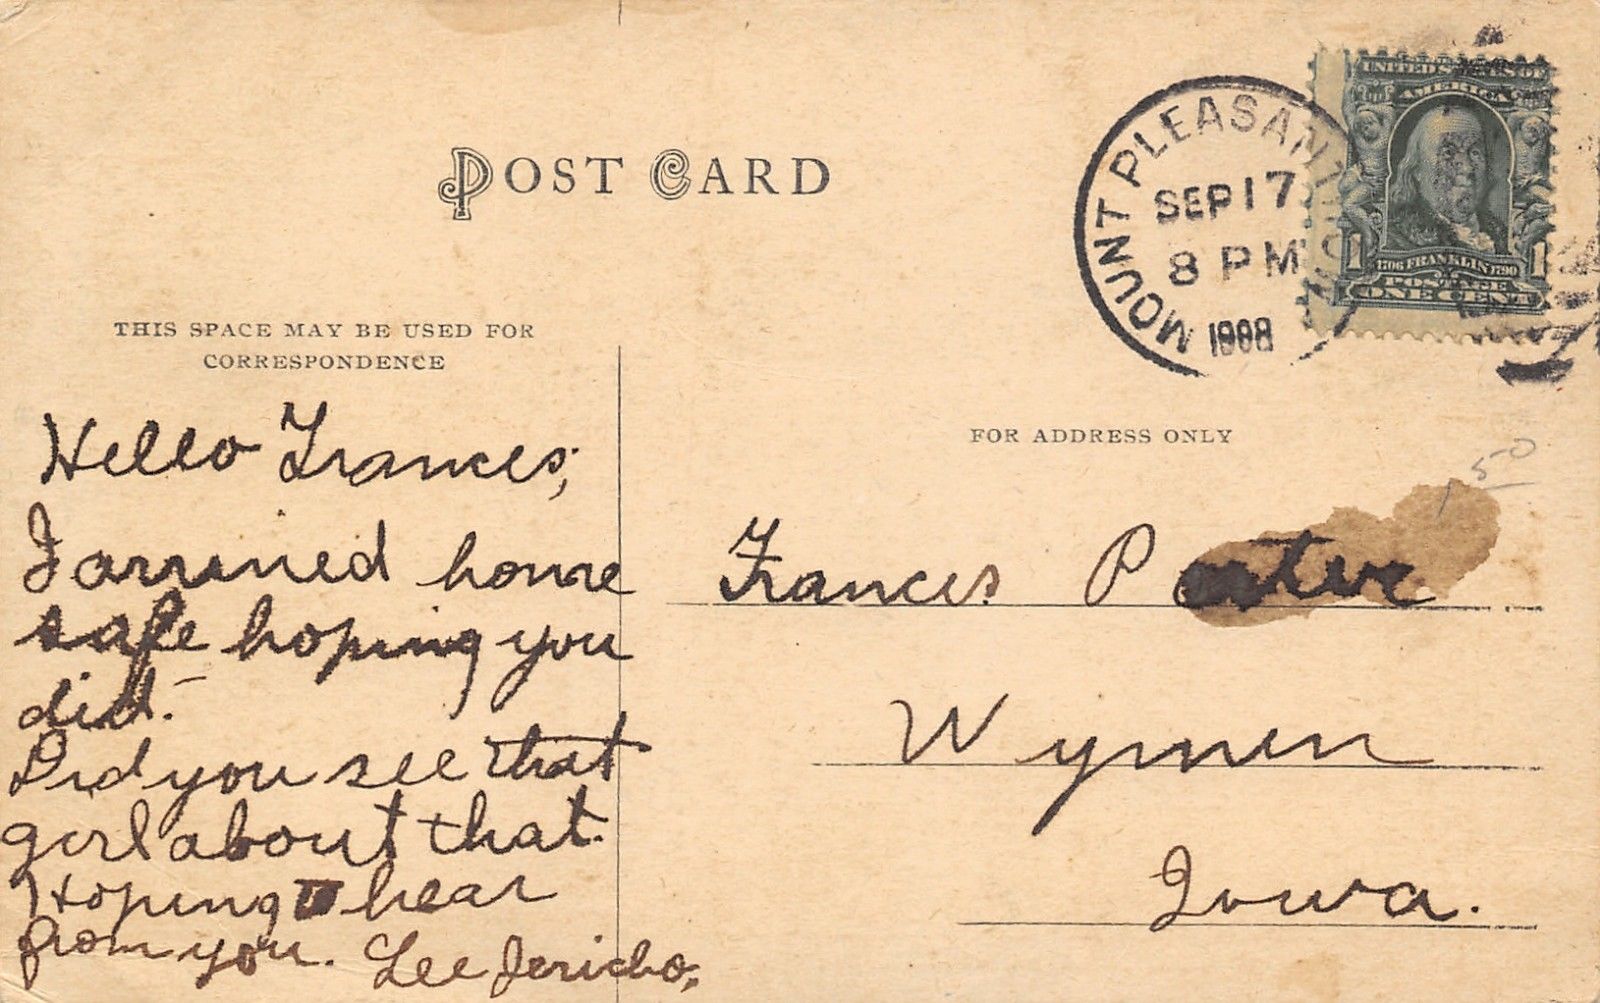 POST CARD
THIS SPACE MAY BE USED FOR
CORRESPONDENCE
Hello Frances;
I arrived home
safe hoping you
did.
Did you see that
girl about that.
Hoping to hear
from you. Lee Jericho,
MOUNT PLEASANT, IOWA
SEP 17
8 PM
1908
UNITED STATES OF
AMERICA
1 1
1706 FRANKLIN 1790
POSTAGE
ONE CENT
FOR ADDRESS ONLY
1 50
Frances Porter
Wymen
Iowa.